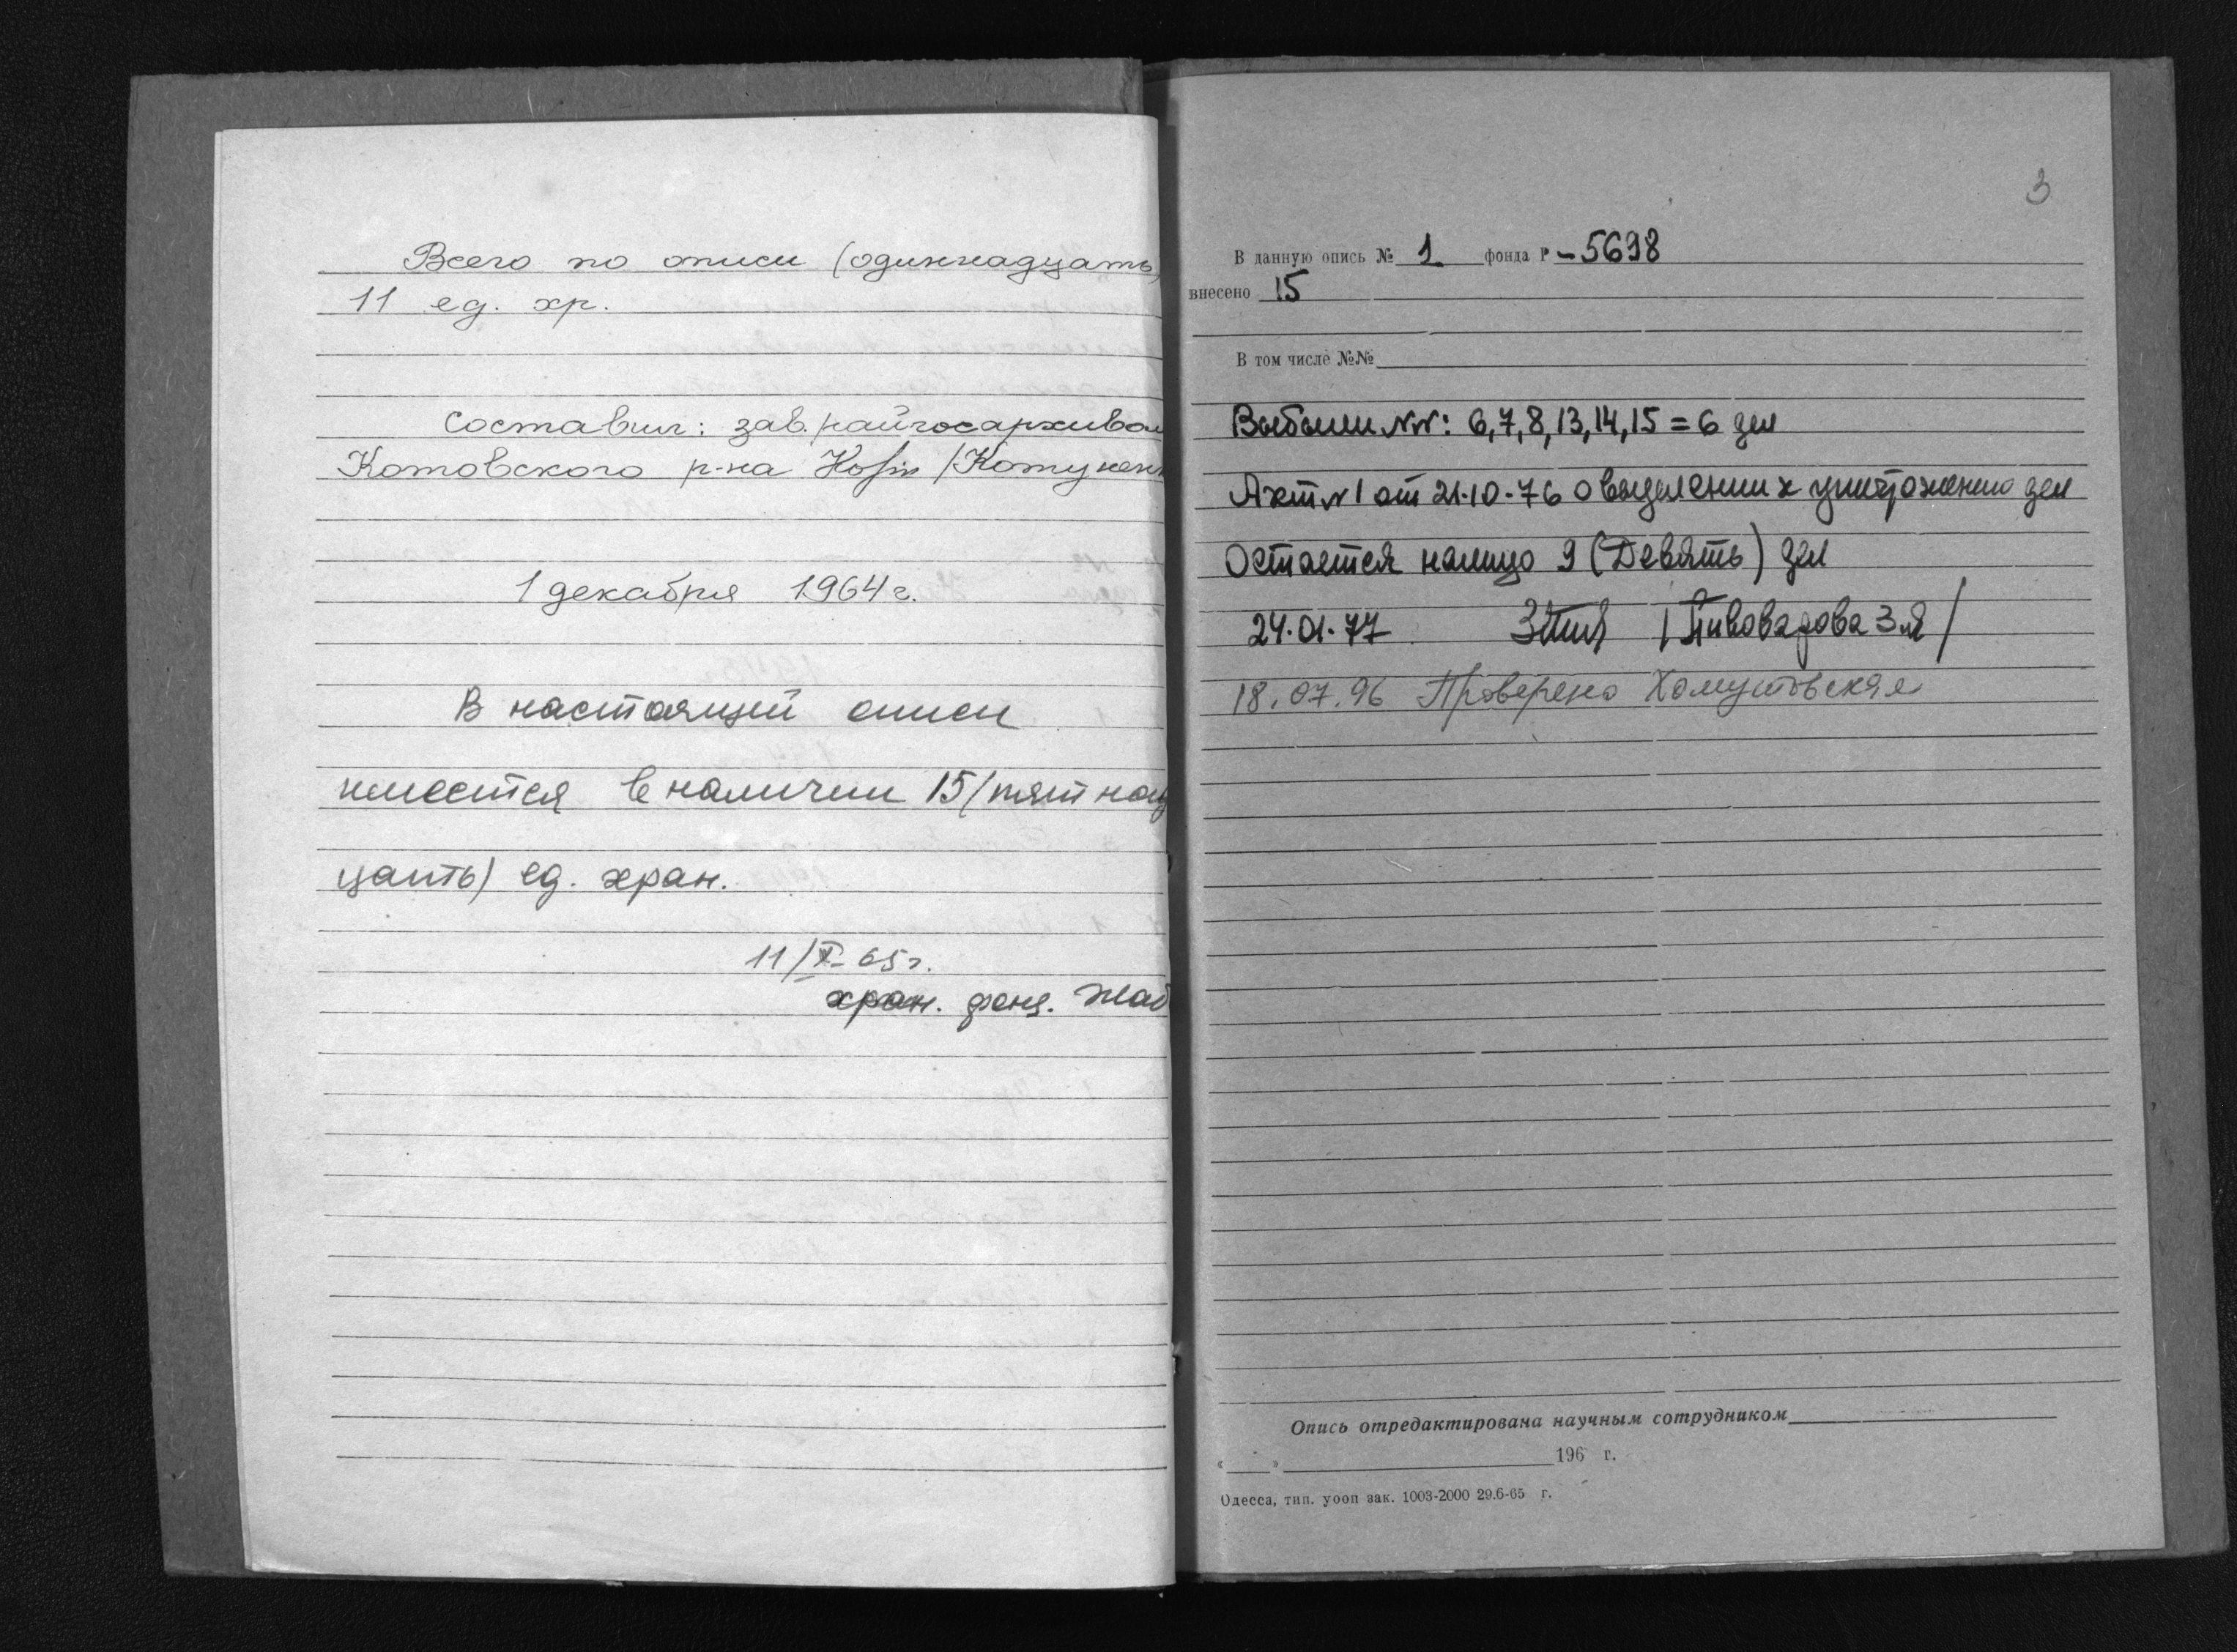 Всего по описи (одиннадцать)
11 ед. хр.
Составил: зав. райгосархивом
Котовского р-на /Котунен
1 декабря 1964 г.
В настоящей описи
имеется в наличии 15 /пятнад
цать) ед. хран.
11/II-65 г.
хран. фонд.
3
В данную опись № 1 фонда Р -5698
внесено 15
В том числе №№
Выбыли №№: 6,7,8,13,14,15 = 6 дел
Акт №1 от 21.10.76 о выделении к уничтожению дел
Остается налицо 9 (Девять) дел
24.01.77 /Пивоварова З.Я/
18.07.96 Проверено Хомутовская
Опись отредактирована научным сотрудником
« » 196 г.
Одесса, тип. уооп зак. 1003-2000 29.6-65 г.